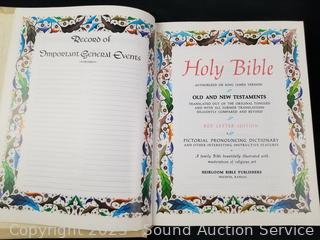 Record of
Important General Events
Holy Bible
AUTHORIZED OR KING JAMES VERSION
OLD AND NEW TESTAMENTS
TRANSLATED OUT OF THE ORIGINAL TONGUES
AND WITH ALL FORMER TRANSLATIONS
DILIGENTLY COMPARED AND REVISED
RED LETTER EDITION
PICTORIAL PRONOUNCING DICTIONARY
AND OTHER INTERESTING INSTRUCTIVE FEATURES
A family Bible beautifully illustrated with
masterpieces of religious art
HEIRLOOM BIBLE PUBLISHERS
WICHITA, KANSAS
Copyright 2023 - Sound Auction Service